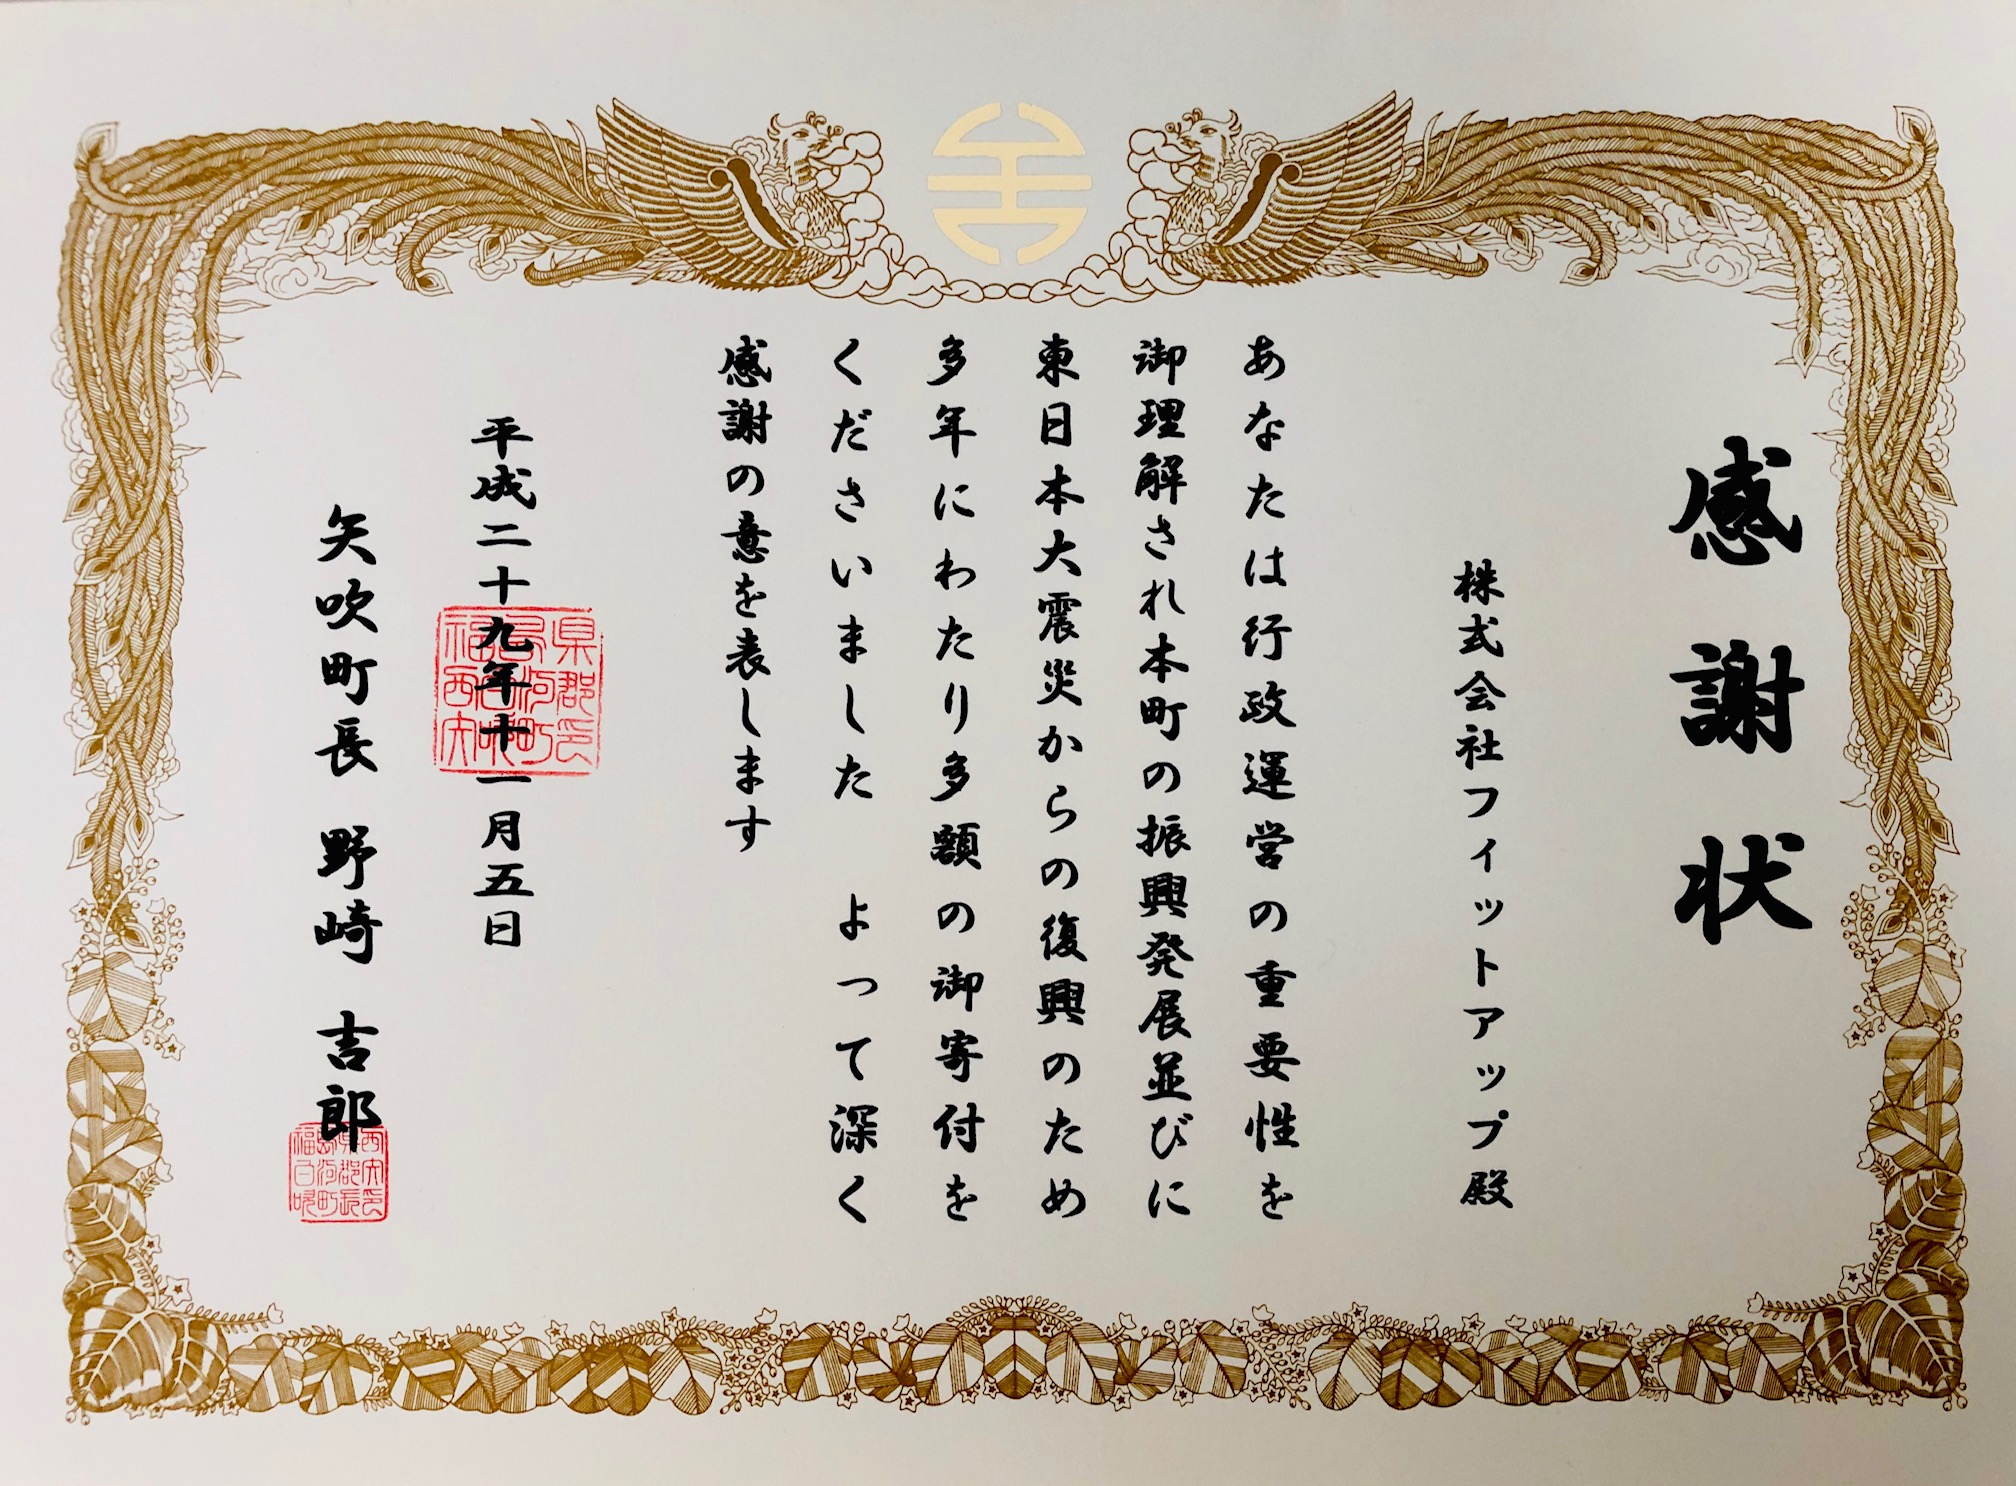 感謝状
株式会社フィットアップ殿
あなたは行政運営の重要性を
御理解され本町の振興発展並びに
東日本大震災からの復興のため
多年にわたり多額の御寄付を
くださいました よって深く
感謝の意を表します
平成二十九年十一月五日
矢吹町長 野崎 吉郎